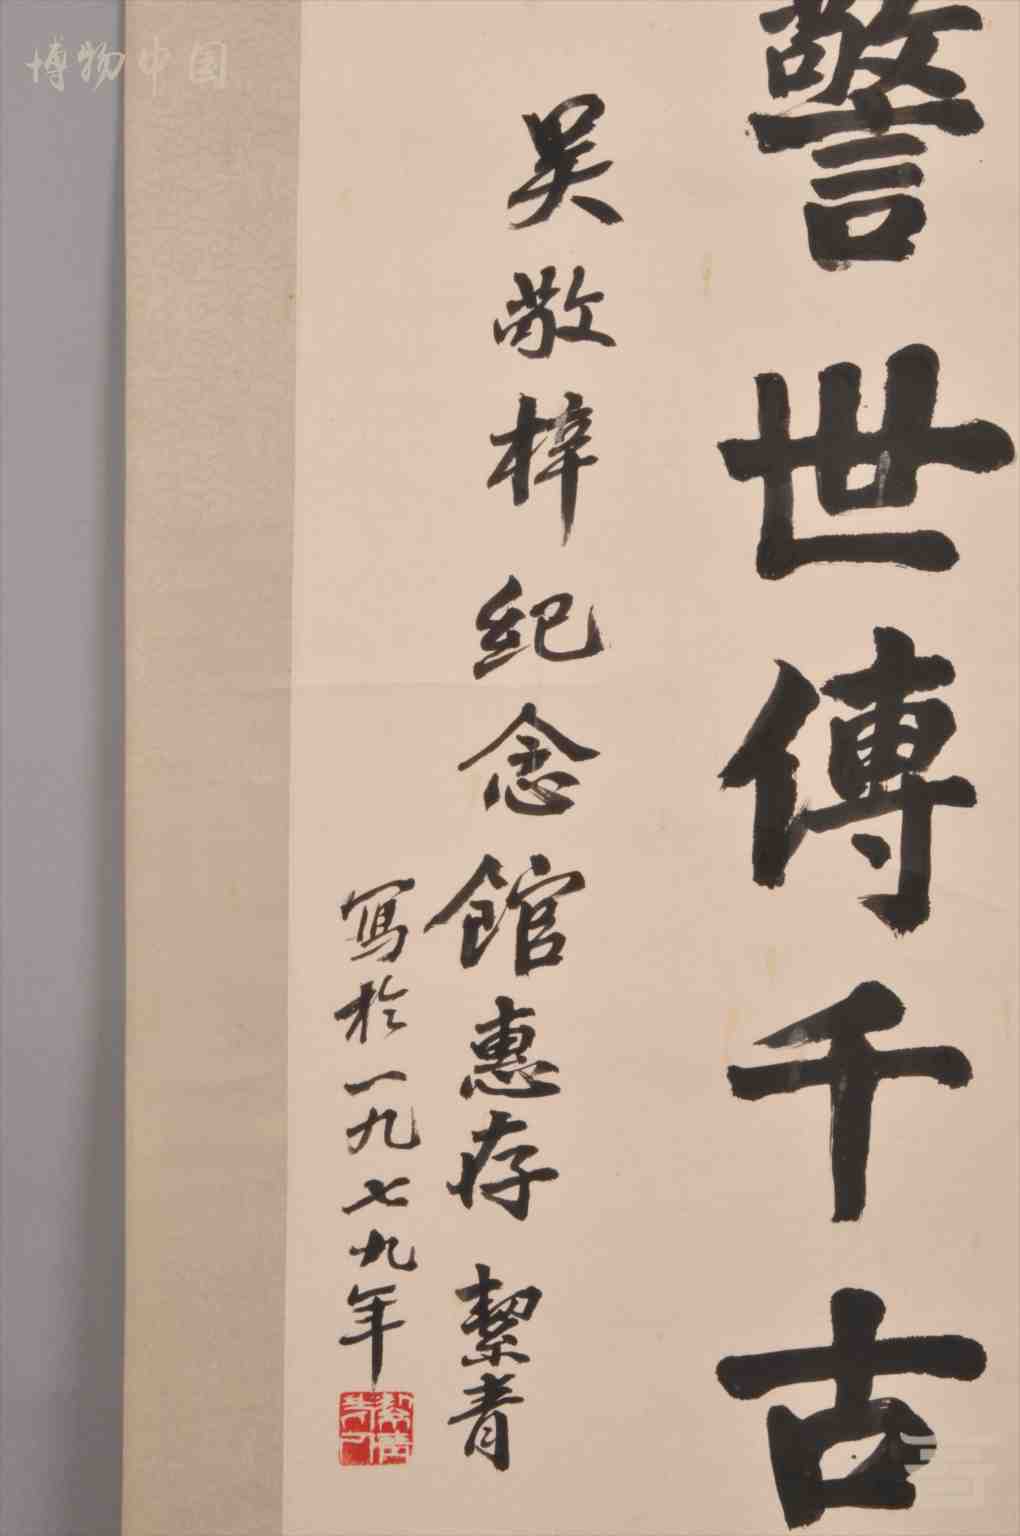 警世傳千古
吴敬梓紀念館惠存 絜青
寫於一九七九年
博物中国